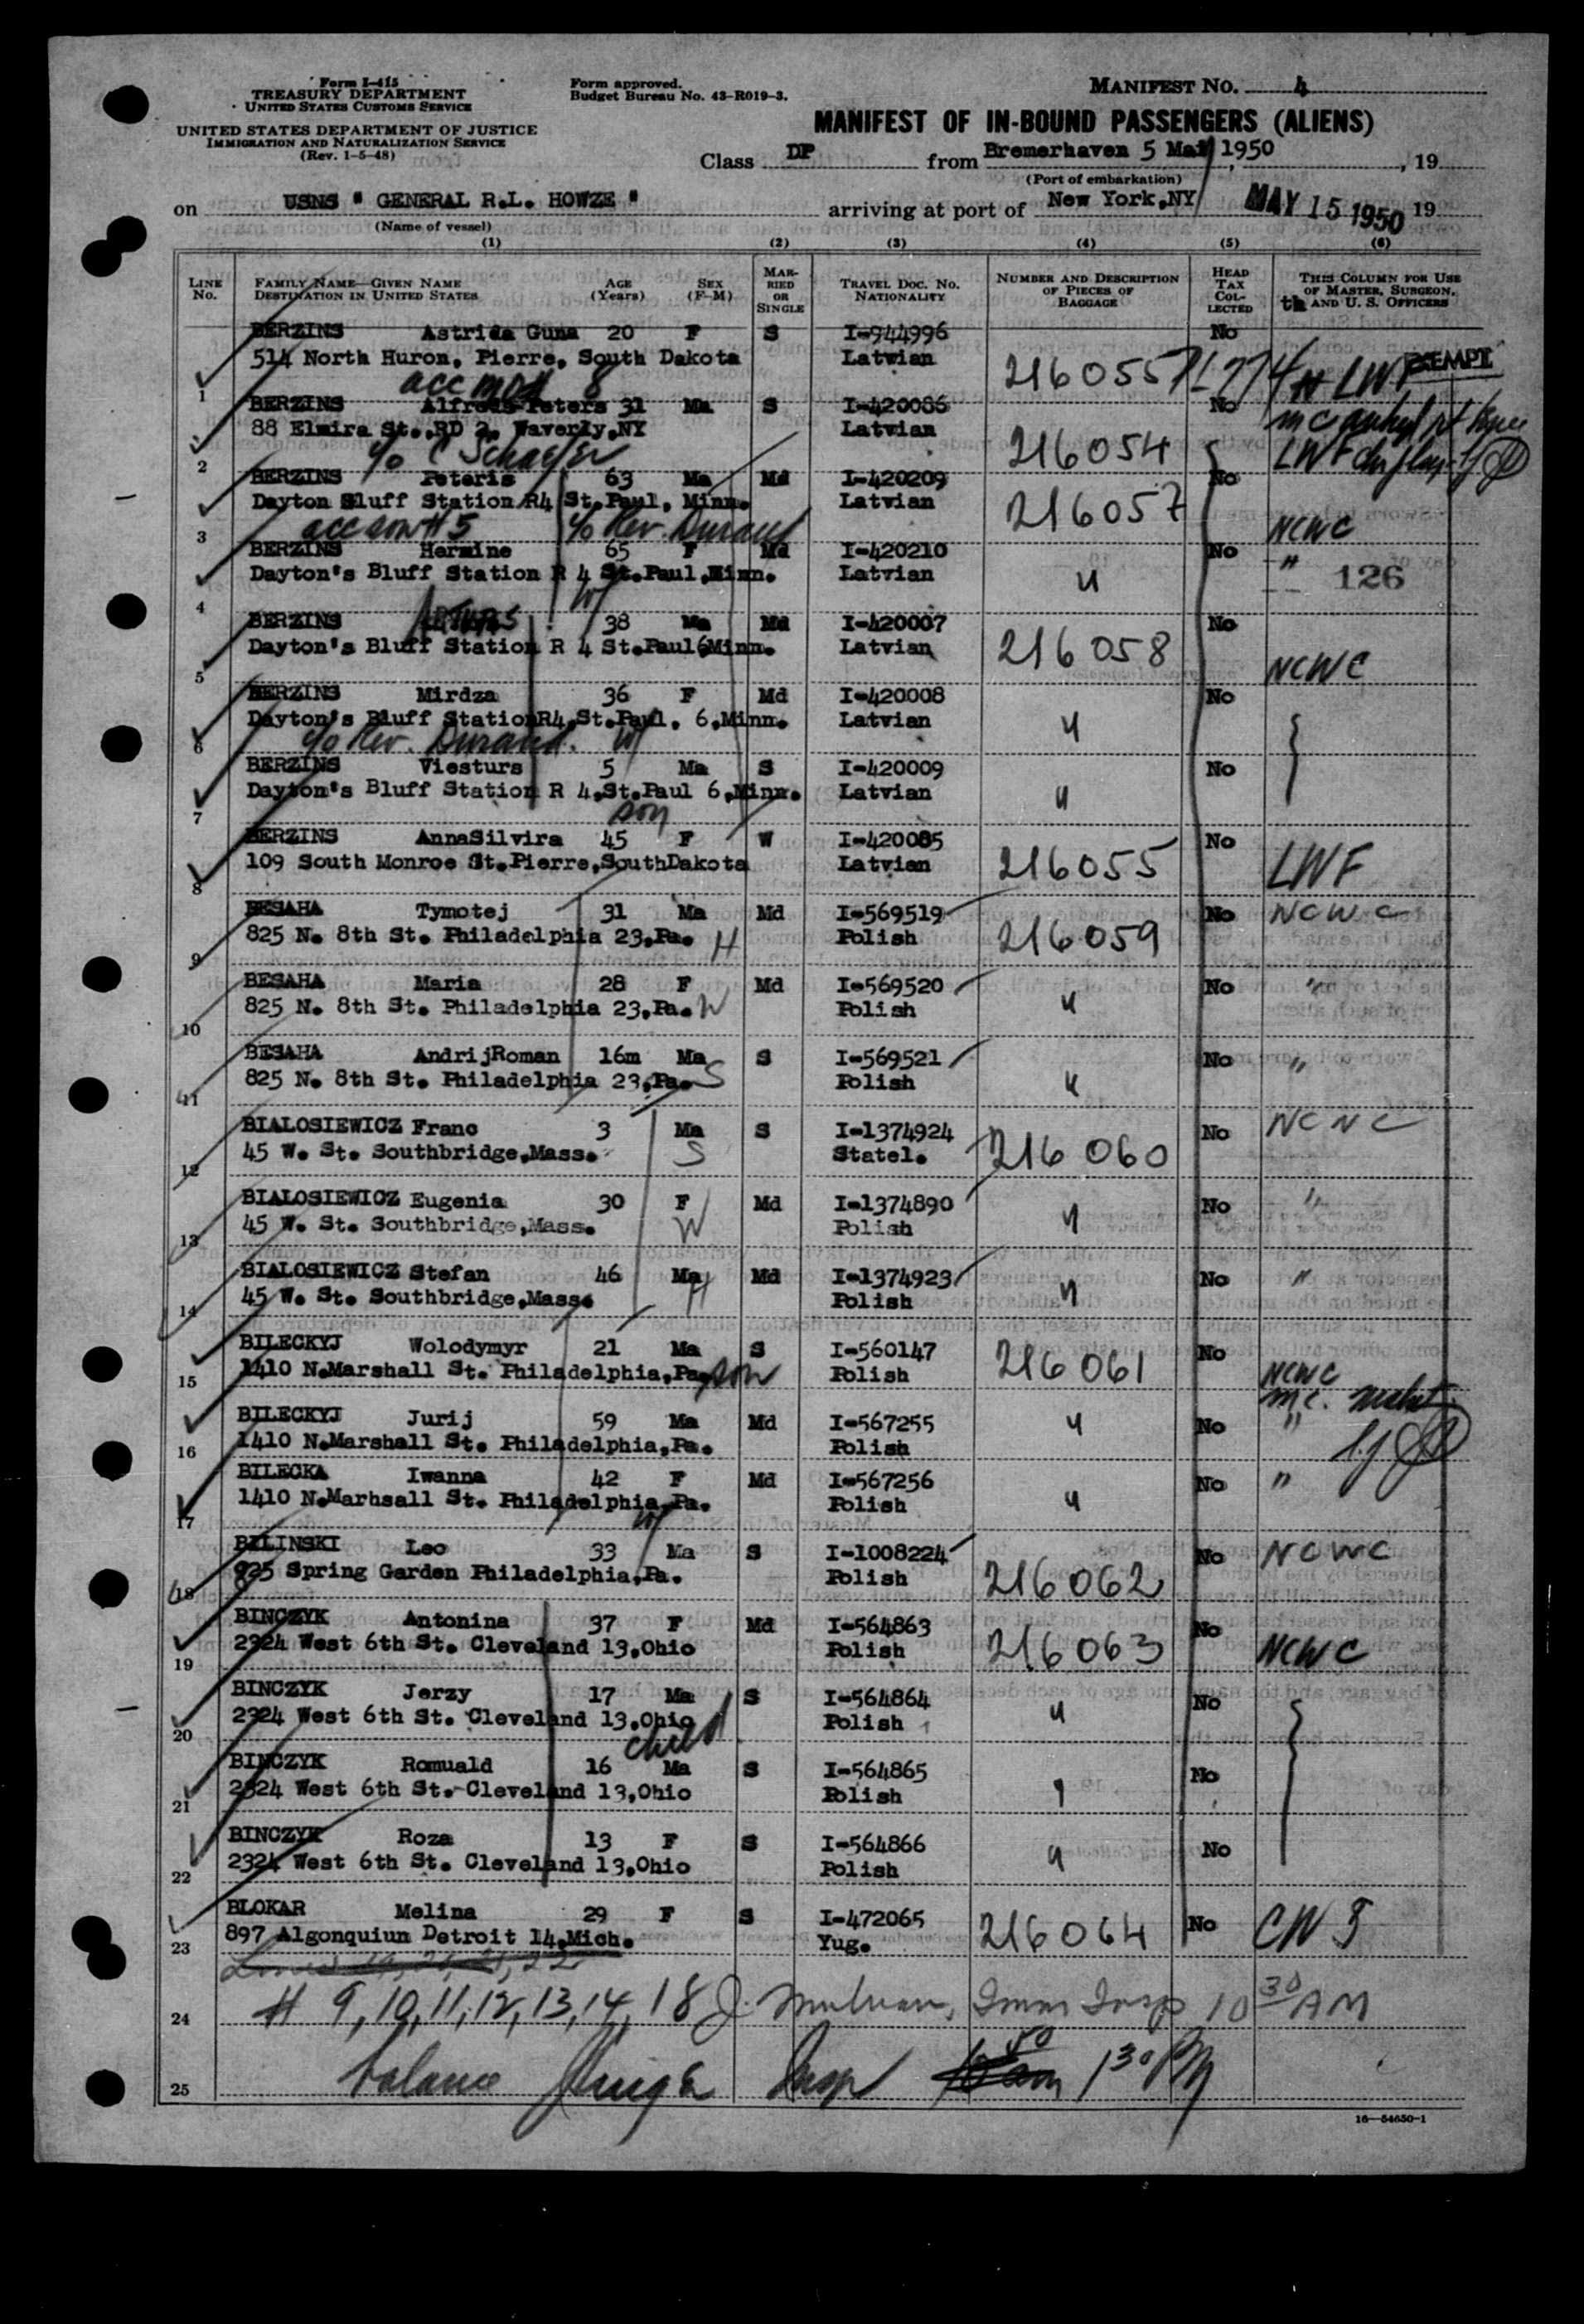 Form I-415
TREASURY DEPARTMENT
UNITED STATES CUSTOMS SERVICE
UNITED STATES DEPARTMENT OF JUSTICE
IMMIGRATION AND NATURALIZATION SERVICE
(Rev. 1-5-48)
Form approved.
Budget Bureau No. 43-R019-3.
MANIFEST NO. 4
MANIFEST OF IN-BOUND PASSENGERS (ALIENS)
Class DP from Bremerhaven 5 Mai 1950, 19
(Port of embarkation)
on USNS " GENERAL R.L. HOWZE " arriving at port of New York,NY MAY 15 1950 19
(Name of vessel)
(1) (2) (3) (4) (5) (6)
LINE No. FAMILY NAME—GIVEN NAME DESTINATION IN UNITED STATES AGE (Years) SEX (F-M) MARRIED OR SINGLE TRAVEL DOC. NO. NATIONALITY NUMBER AND DESCRIPTION OF PIECES OF BAGGAGE HEAD TAX COLLECTED THIS COLUMN FOR USE OF MASTER, SURGEON, AND U. S. OFFICERS
BERZINS Astrida Guna 20 F S I-944996 No
1 514 North Huron, Pierre, South Dakota Latvian 216055 LWF EXEMPT
acc 8
BERZINS Alfreds Peters 31 Ma S I-420086 No
2 88 Elmira St.,RD 2, Waverly,NY Latvian 216054 LWF
c/o C Schaefer
BERZINS Peteris 63 Ma Md I-420209 No
3 Dayton Bluff Station R4 St.Paul, Minn. Latvian 216057 NCWC
acc son # 5 c/o Rev. Durand
BERZINS Hermine 65 F Md I-420210 No "
4 Dayton's Bluff Station R 4 St.Paul,Minn. Latvian " 126
W
BERZINS ARTURS 38 Ma Md I-420007 No
5 Dayton's Bluff Station R 4 St.Paul 6,Minn. Latvian 216058 NCWC
BERZINS Mirdza 36 F Md I-420008 No
6 Dayton's Bluff Station R4,St.Paul. 6,Minn. Latvian "
c/o Rev. Durand. W
BERZINS Viesturs 5 Ma S I-420009 No
7 Dayton's Bluff Station R 4,St.Paul 6,Minn. Latvian "
son
BERZINS AnnaSilvira 45 F W I-420085 No
8 109 South Monroe St.Pierre,SouthDakota Latvian 216055 LWF
BESAHA Tymotej 31 Ma Md I-569519 No NCWC
9 825 N. 8th St. Philadelphia 23,Pa. H Polish 216059
BESAHA Maria 28 F Md I-569520 No "
10 825 N. 8th St. Philadelphia 23,Pa. W Polish "
BESAHA AndrijRoman 16m Ma S I-569521 No "
11 825 N. 8th St. Philadelphia 23,Pa. S Polish "
BIALOSIEWICZ Franc 3 Ma S I-1374924 No NCWC
12 45 W. St. Southbridge,Mass. S Statel. 216060
BIALOSIEWICZ Eugenia 30 F Md I-1374890 No "
13 45 W. St. Southbridge,Mass. W Polish "
BIALOSIEWICZ Stefan 46 Ma Md I-1374923 No "
14 45 W. St. Southbridge,Mass. H Polish "
BILECKYJ Wolodymyr 21 Ma S I-560147 No
15 1410 N.Marshall St. Philadelphia,Pa. son Polish 216061 NCWC
BILECKYJ Jurij 59 Ma Md I-567255 " No "
16 1410 N.Marshall St. Philadelphia,Pa. Polish
BILECKA Iwanna 42 F Md I-567256 No "
17 1410 N.Marhsall St. Philadelphia,Pa. Polish "
W
BILINSKI Leo 33 Ma S I-1008224 No NCWC
18 925 Spring Garden Philadelphia,Pa. Polish 216062
BINCZYK Antonina 37 F Md I-564863 No
19 2324 West 6th St. Cleveland 13,Ohio Polish 216063 NCWC
BINCZYK Jerzy 17 Ma S I-564864 No
20 2324 West 6th St. Cleveland 13,Ohio Polish "
child
BINCZYK Romuald 16 Ma S I-564865 No
21 2324 West 6th St. Cleveland 13,Ohio Polish "
BINCZYK Roza 13 F S I-564866 No
22 2324 West 6th St. Cleveland 13,Ohio Polish "
BLOKAR Melina 29 F S I-472065 No
23 897 Algonquiun Detroit 14,Mich. Yug. 216064
24 # 9,10,11,12,13,14,18 J. Imm Insp 10 30 AM
25 balance Insp 1 30 PM
16—54650-1